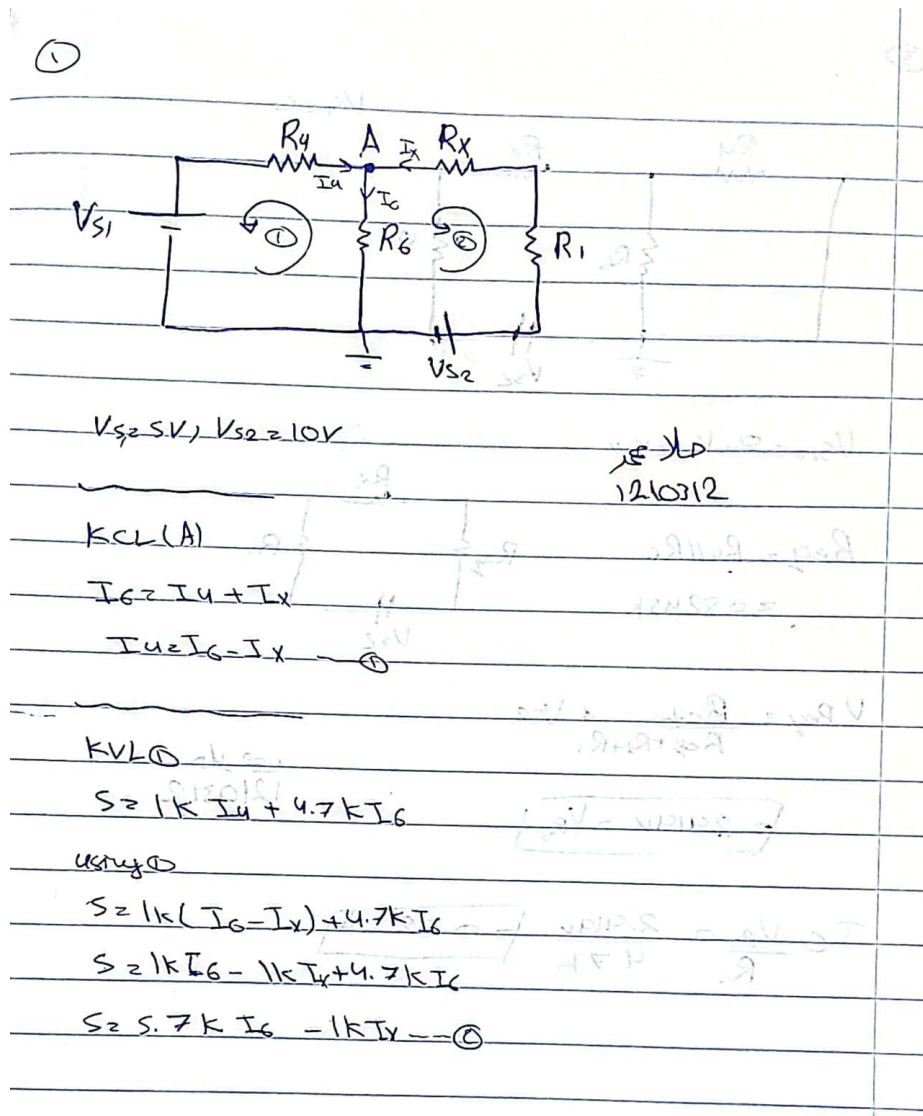 ①
R4 A Ix Rx
I4 I6
VS1 ① R6 ② R1
VS2
VS1=5V, VS2=10V
1210312
KCL(A)
I6=I4+Ix
I4=I6-Ix—①
KVL①
5=1k I4+4.7kI6
using①
5=1k(I6-Ix)+4.7kI6
5=1kI6-1kIx+4.7kI6
5=5.7kI6-1kIx--②